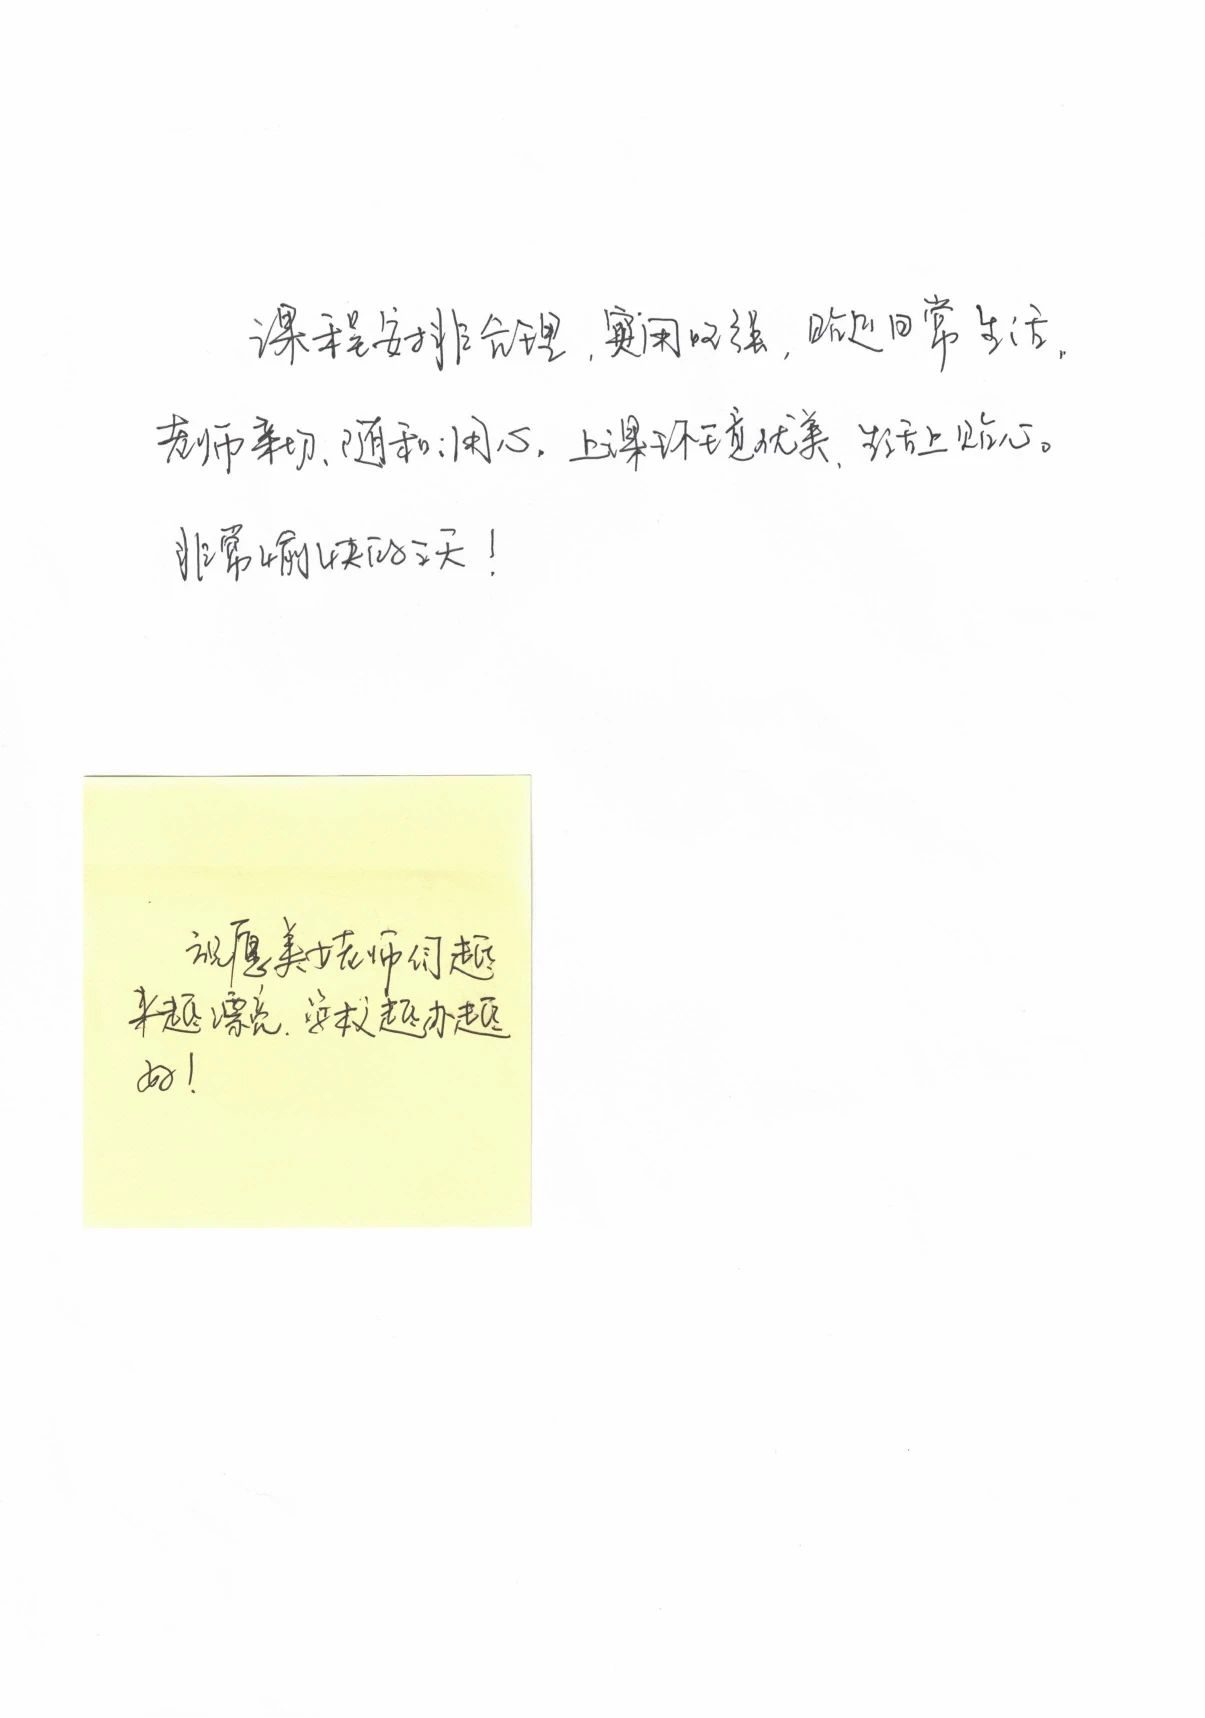 课程安排合理，实用性强，贴近日常生活，
老师亲切、随和、用心，上课环境优美，生活上贴心。
非常愉快的三天！
祝愿美女老师们越
来越漂亮，学校越办越
好！